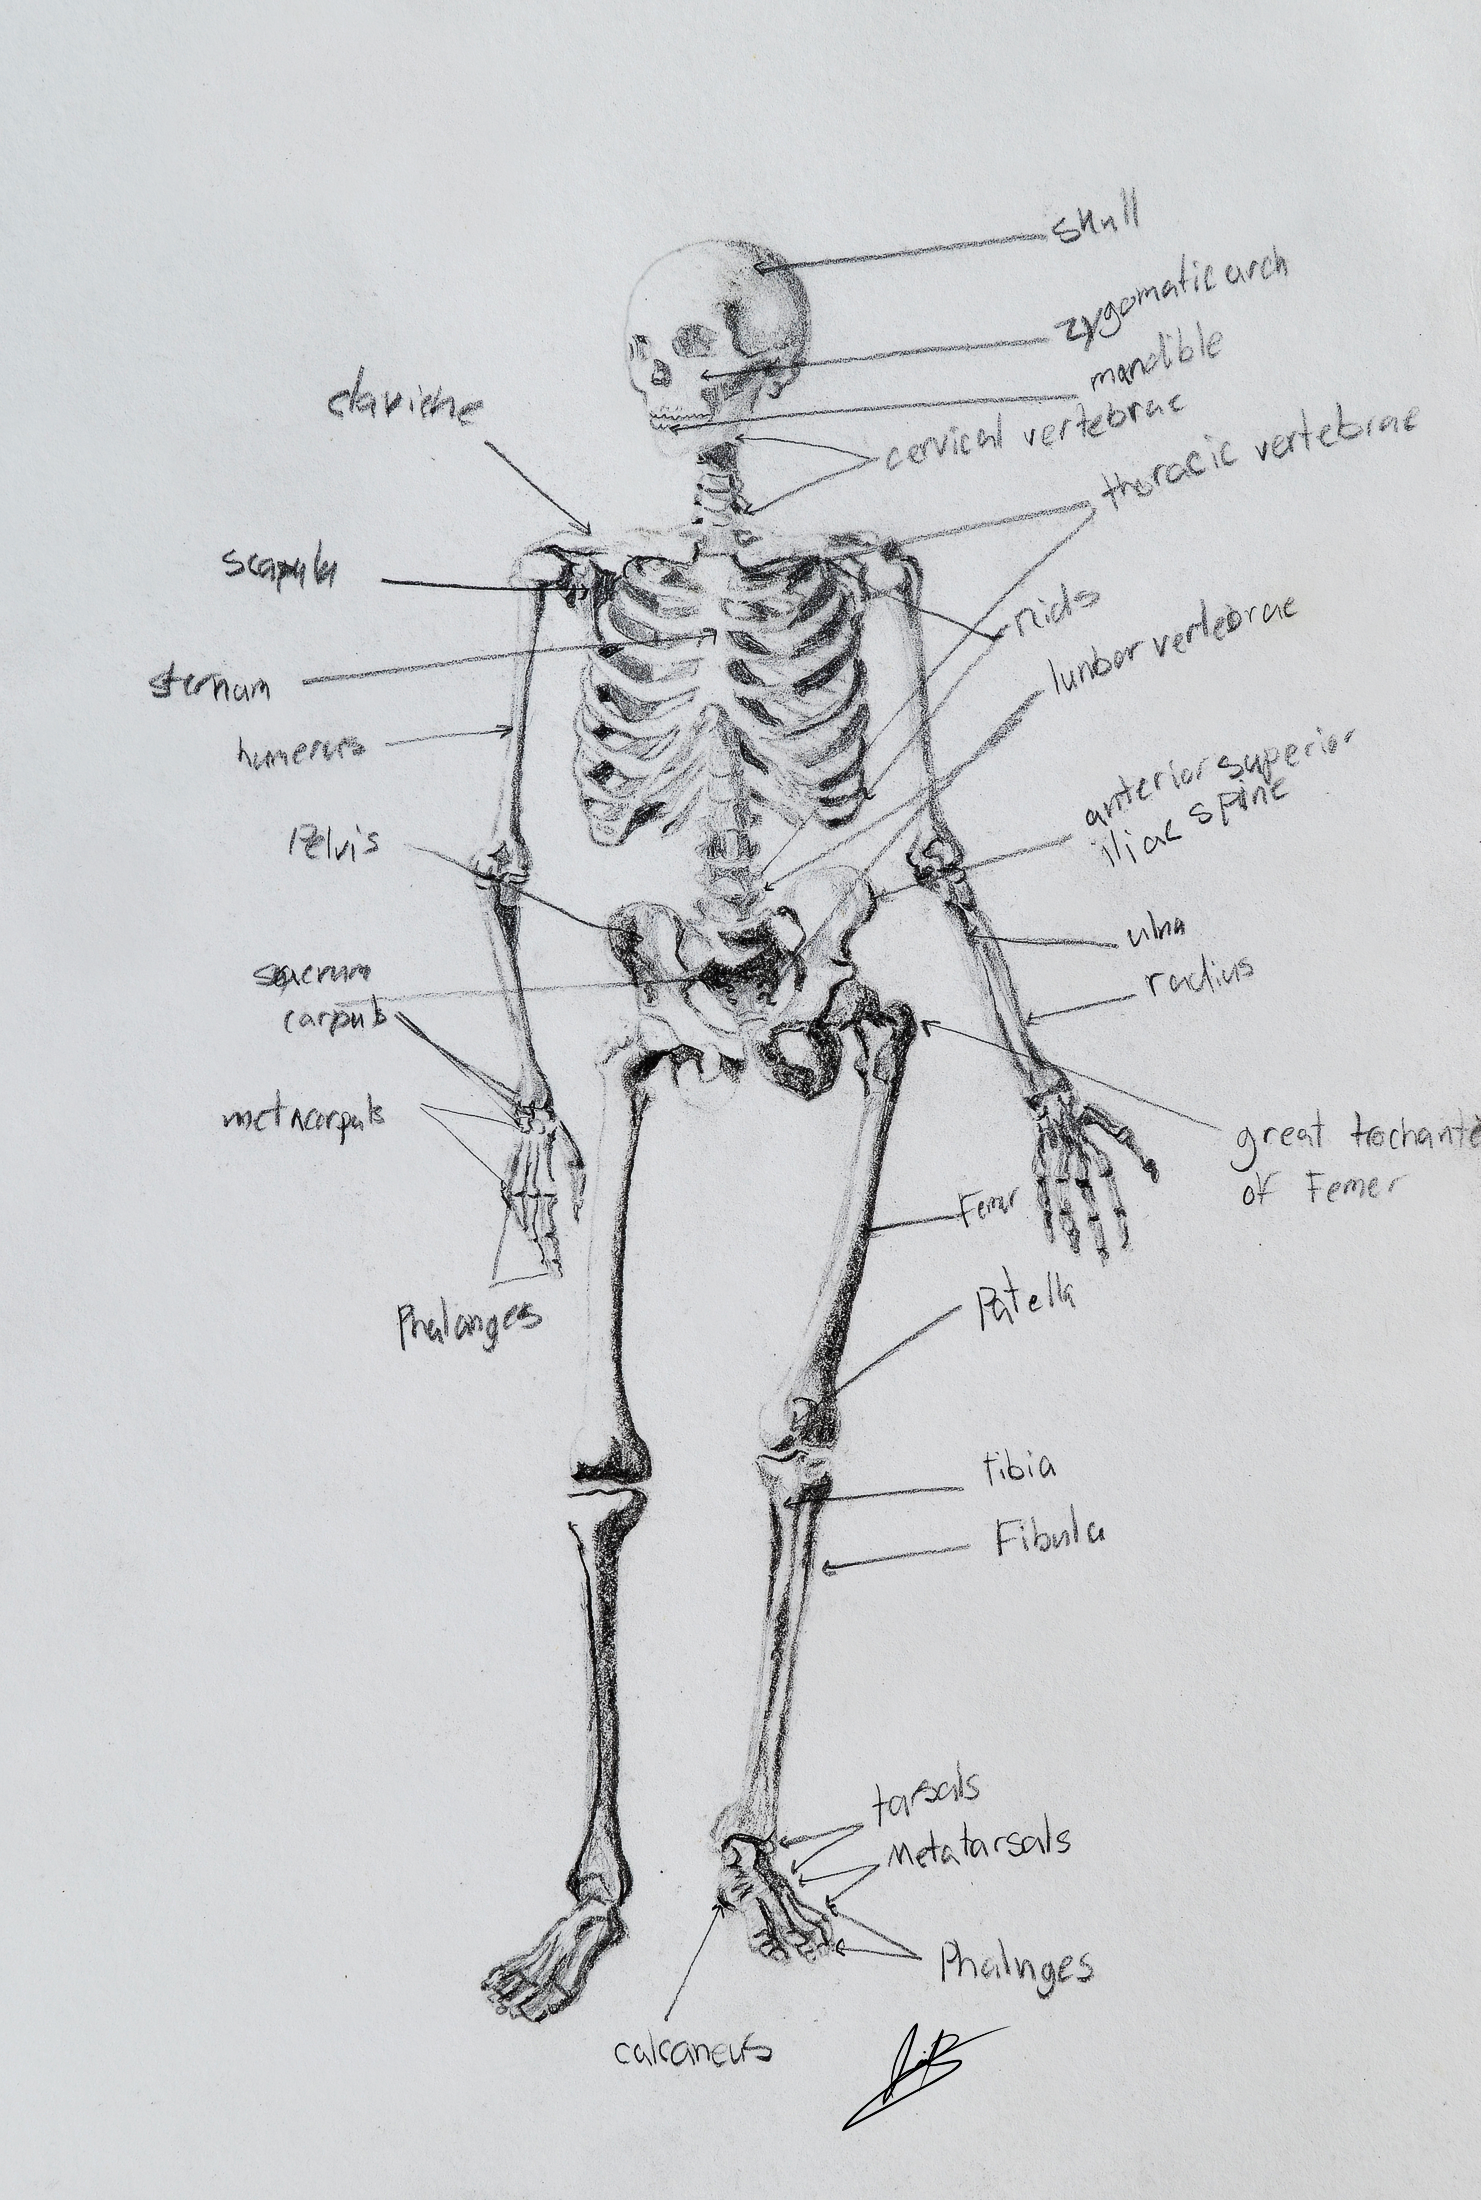 skull
zygomatic arch
mandible
clavicle
cervical vertebrae
thoracic vertebrae
scapula
rids
lunbor vertebrae
sternum
humerus
anterior superior
iliac spine
Pelvis
ulna
radius
sacrum
carpals
metacarpals
great trochante
of Femer
Femur
Patella
Phalanges
tibia
Fibula
tarsals
Metatarsals
Phalanges
calcaneus